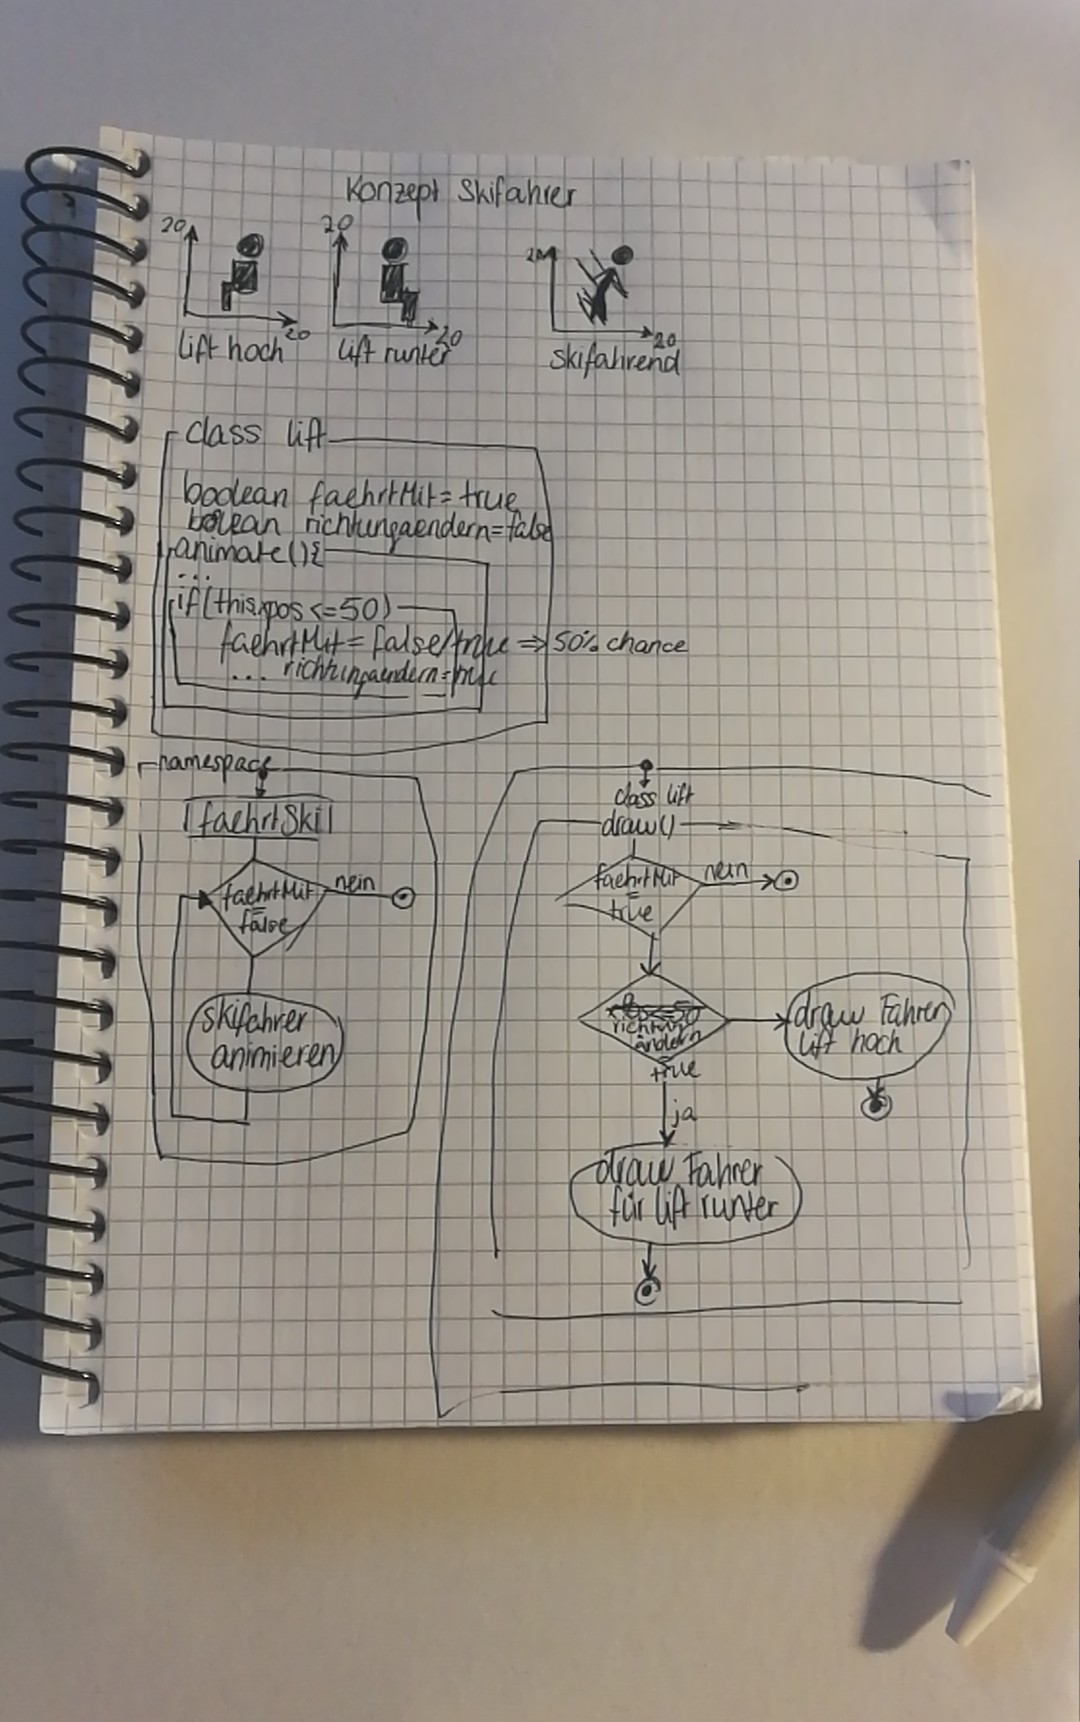 Konzept Skifahrer
20
20
lift hoch
20
20
lift runter
20
20
skifahrend
class lift
boolean faehrtMit = true
bolean richtungaendern = false
animate(){
...
if(this.xpos <= 50)
faehrtMit = false/true => 50% chance
... richtungaendern = true
namespace
faehrtSki
faehrtMit
=
false
nein
skifahrer
animieren
class lift
draw()
faehrtMit
=
true
nein
richtun
ändern
true
ja
draw Fahrer
lift hoch
draw Fahrer
für lift runter